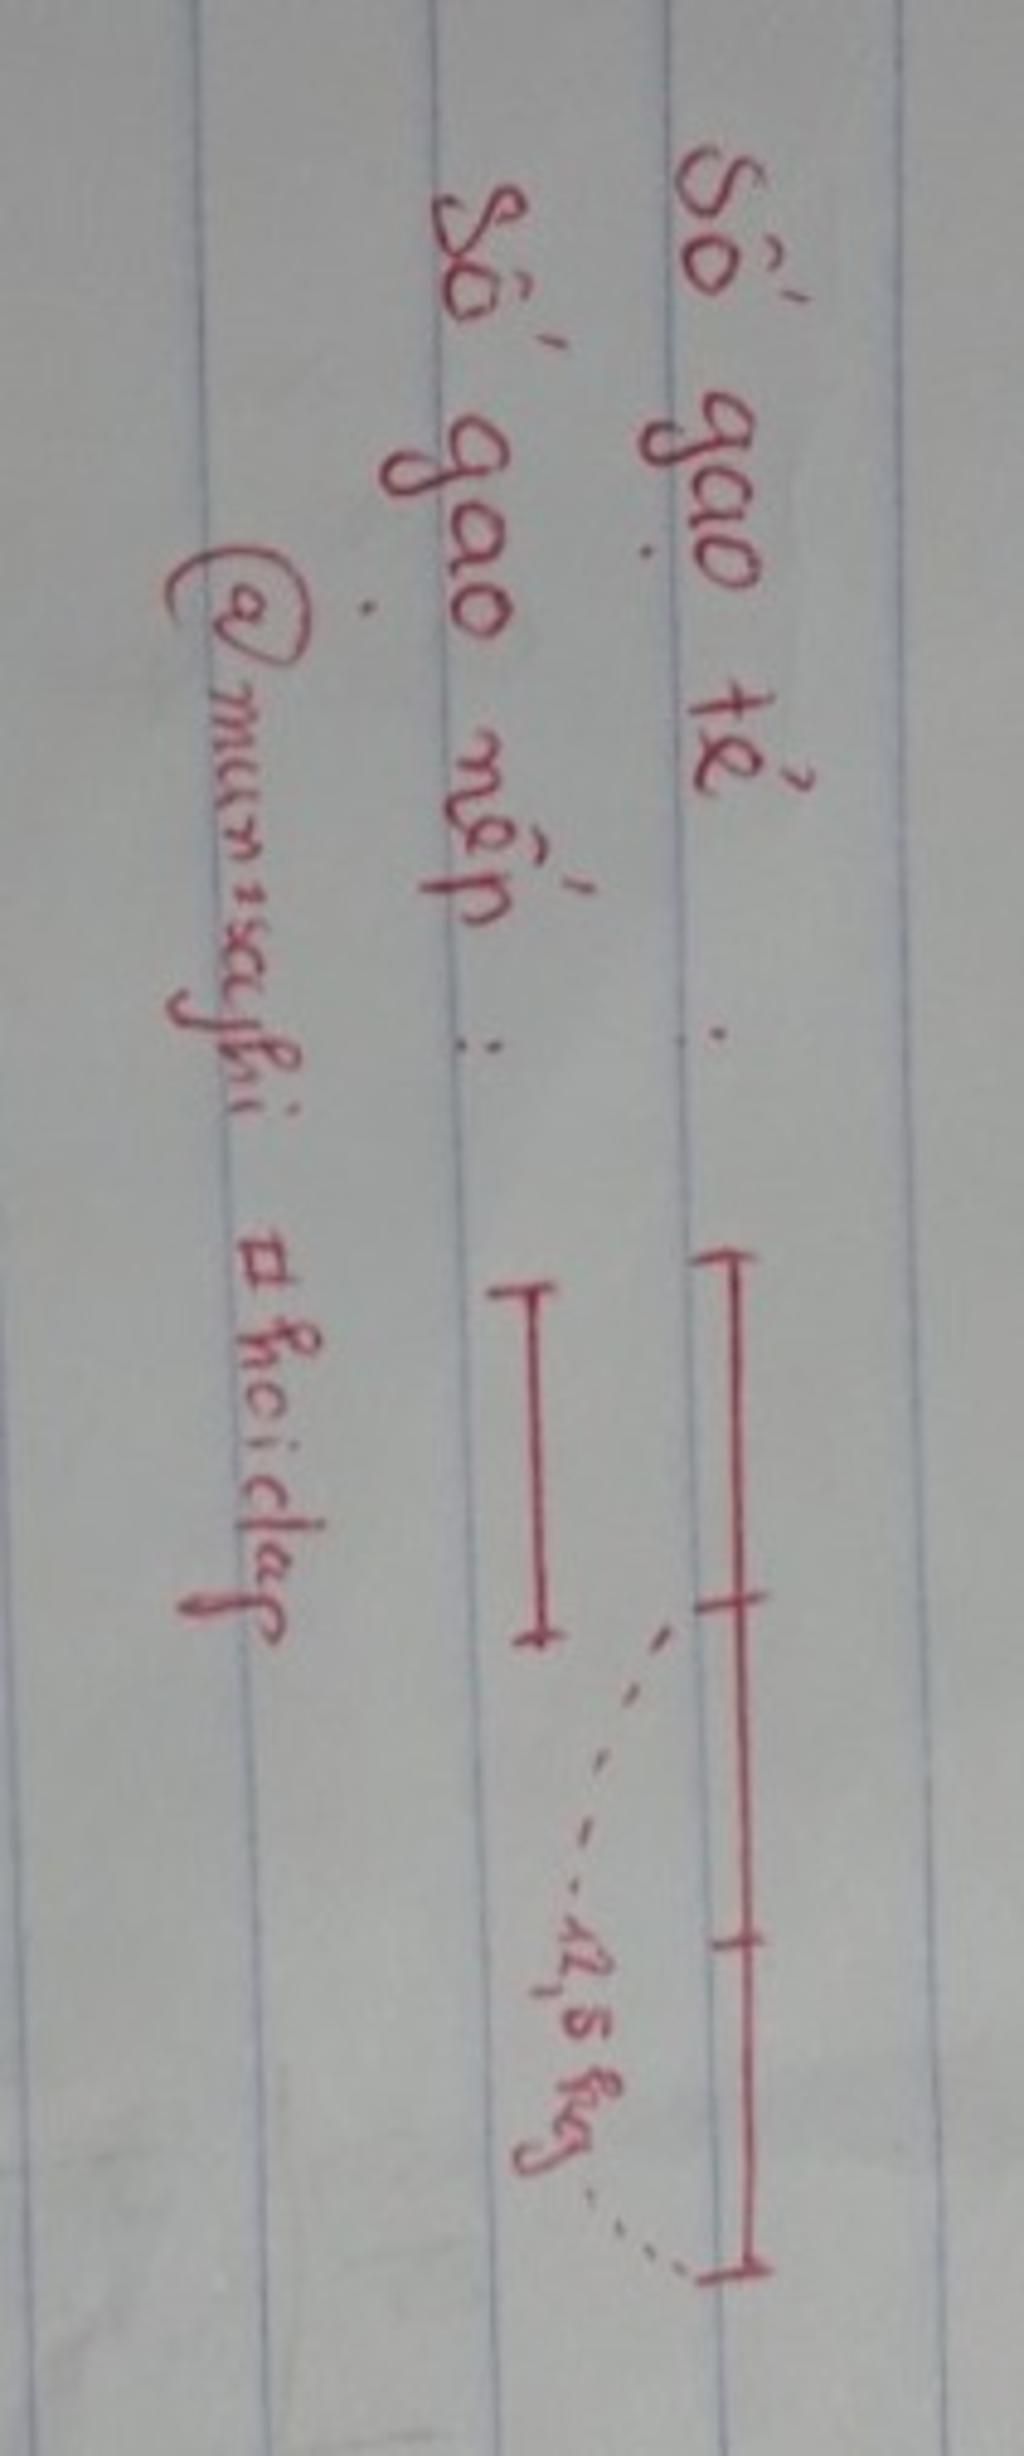 Số gạo tẻ :
Số gạo nếp :
12,5 kg
@munzsayhi #hoidap